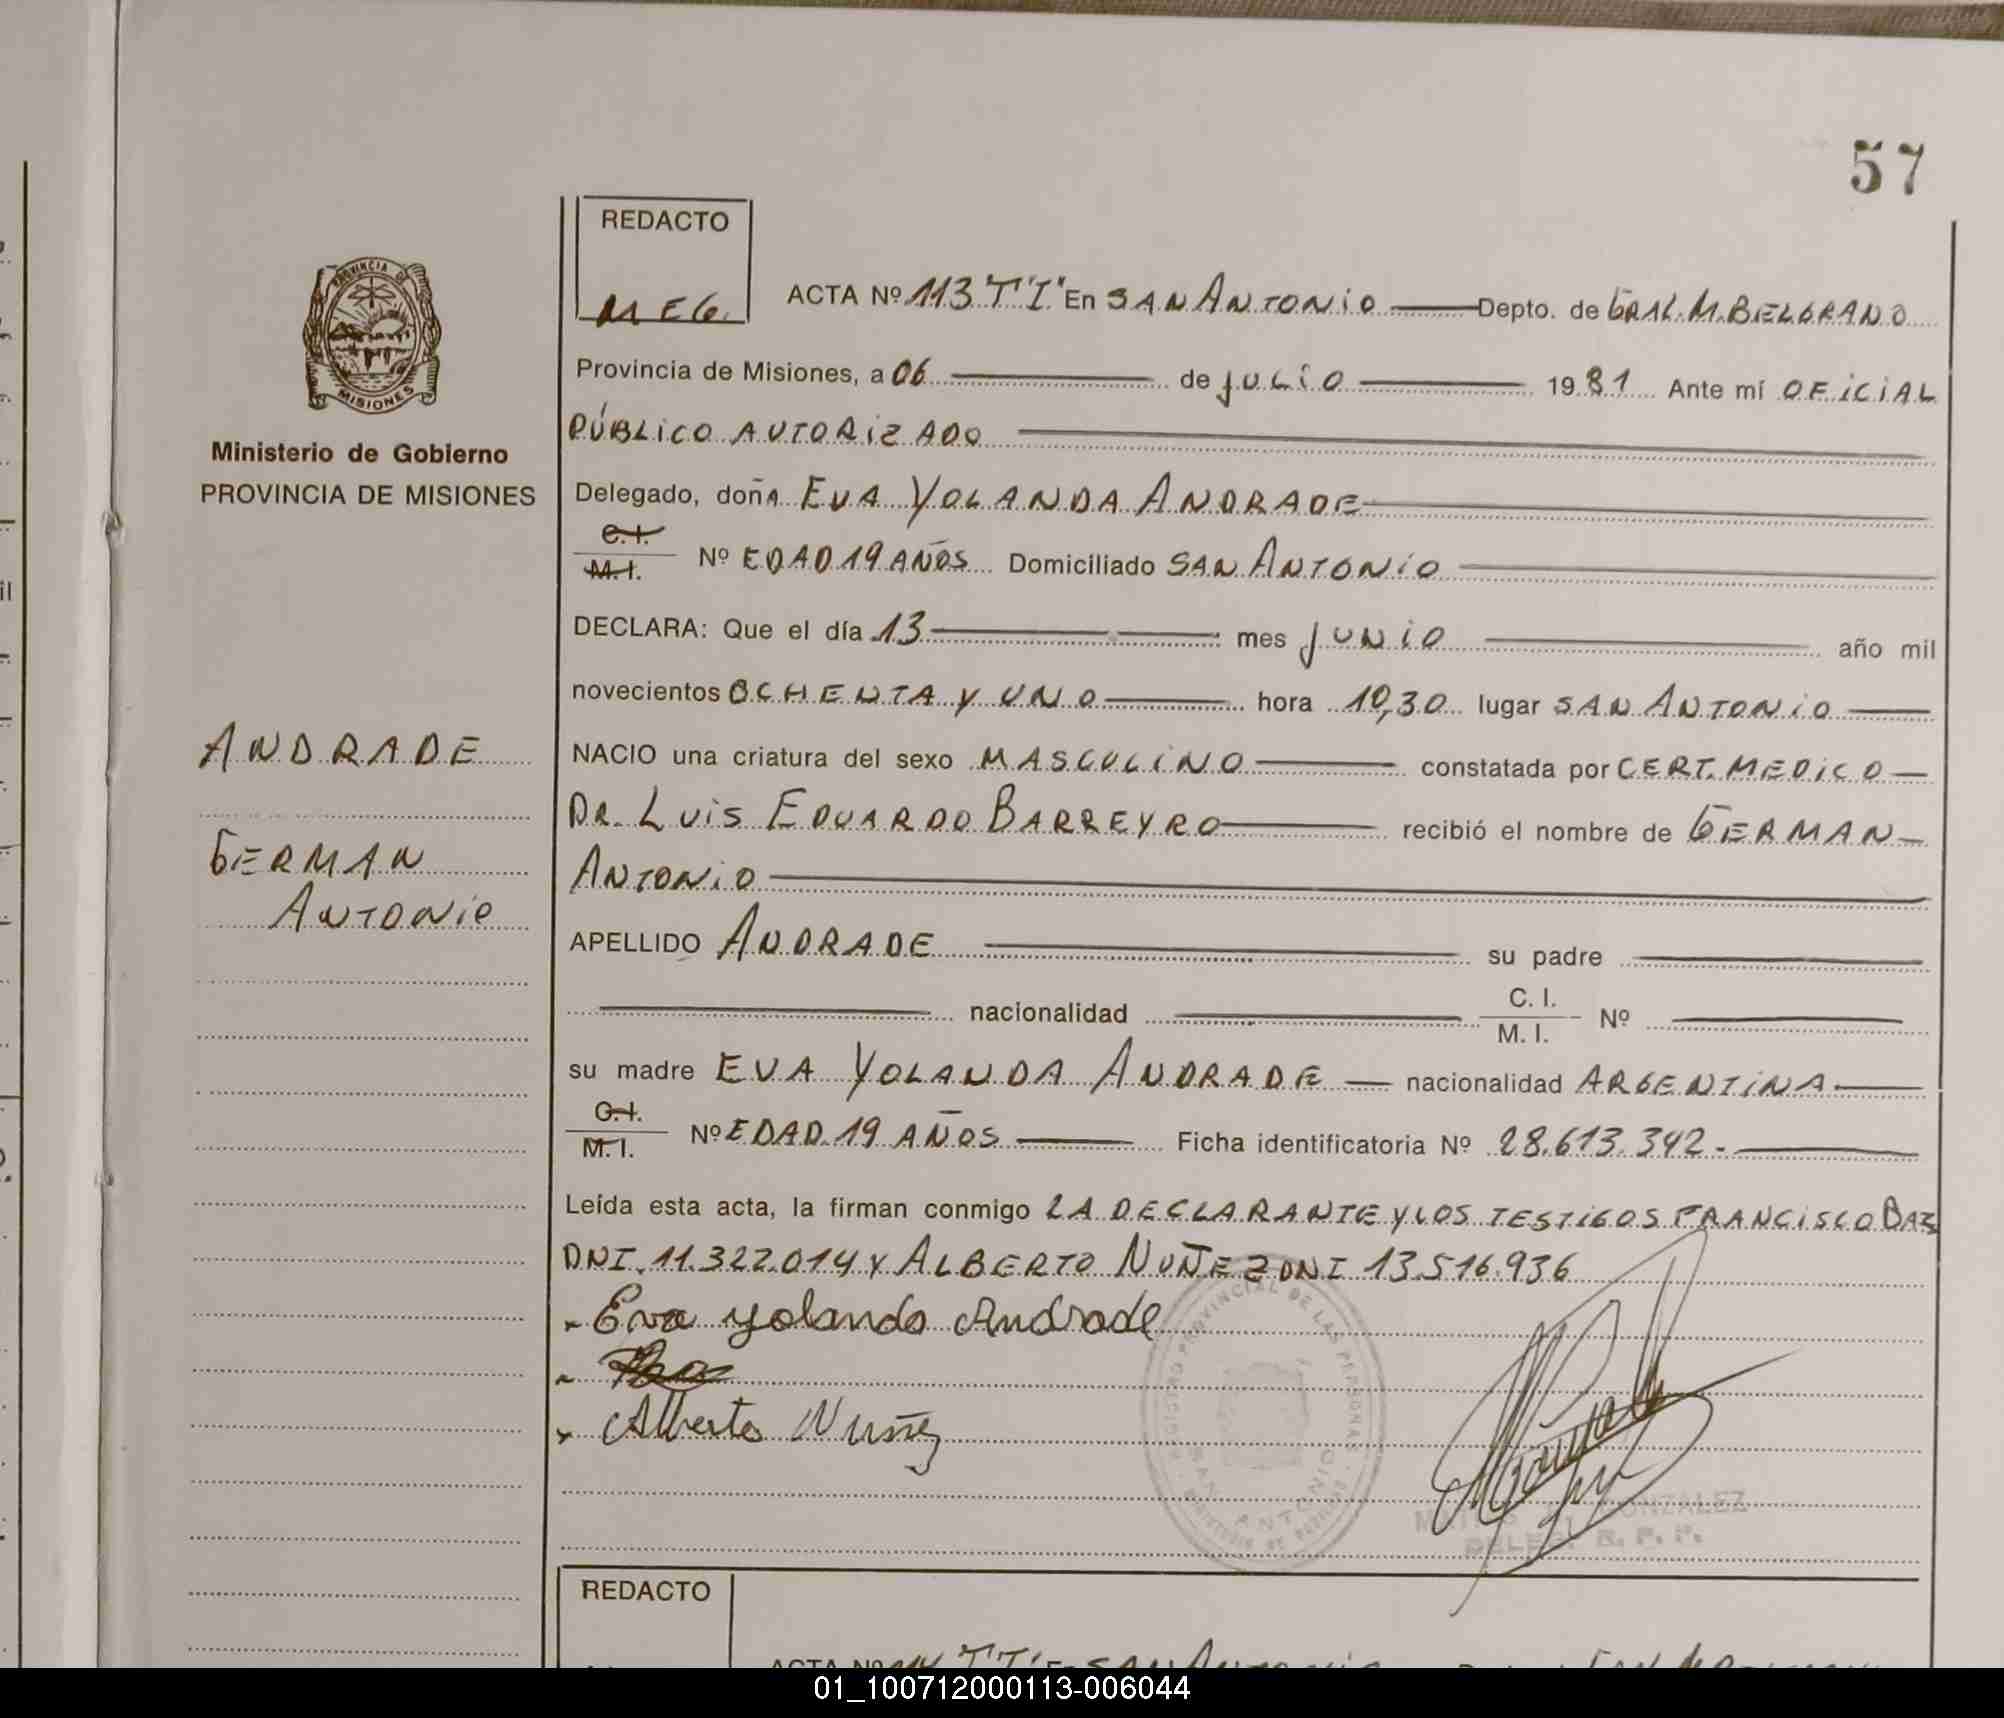 57
REDACTO
M E G.
ACTA Nº 113 T"I" En SAN ANTONIO Depto. de GRAL. M. BELGRANO
Provincia de Misiones, a 06 de JULIO 1981 Ante mí OFICIAL
PÚBLICO AUTORIZADO
Delegado, doña EVA YOLANDA ANDRADE
C.I.
M.I. Nº EDAD 19 AÑOS Domiciliado SAN ANTONIO
DECLARA: Que el día 13 mes JUNIO año mil
novecientos OCHENTA Y UNO hora 10,30 lugar SAN ANTONIO
NACIO una criatura del sexo MASCULINO constatada por CERT. MEDICO
DR. LUIS EDUARDO BARREYRO recibió el nombre de GERMAN
ANTONIO
APELLIDO ANDRADE su padre
nacionalidad C. I.
M. I. Nº
su madre EVA YOLANDA ANDRADE nacionalidad ARGENTINA
C.I.
M.I. Nº EDAD 19 AÑOS Ficha identificatoria Nº 28.613.342.-
Leída esta acta, la firman conmigo LA DECLARANTE Y LOS TESTIGOS FRANCISCO BAZ
DNI. 11.322.014 Y ALBERTO NUÑEZ DNI 13.516.936
Eva yolanda Andrade
Alberto Nuñez
REGISTRO PROVINCIAL DE LAS PERSONAS
SAN ANTONIO
GONZALEZ
DELEG. R. P. P.
PROVINCIA DE
MISIONES
Ministerio de Gobierno
PROVINCIA DE MISIONES
ANDRADE
GERMAN
ANTONIO
REDACTO
ACTA Nº
01_100712000113-006044